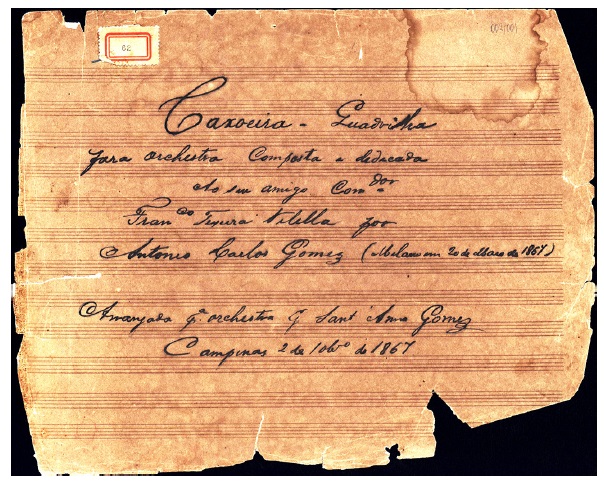 62
Caxoeira - Quadrilha
para orchestra Composta e dedicada
Ao seu amigo Com.dor
Fran.co Texeira Vilella por
Antonio Carlos Gomez (Milano em 20 de Março de 1867)
Arranjada p.a orchestra p.r Sant'Anna Gomez
Campinas 2 de 10br.o de 1867